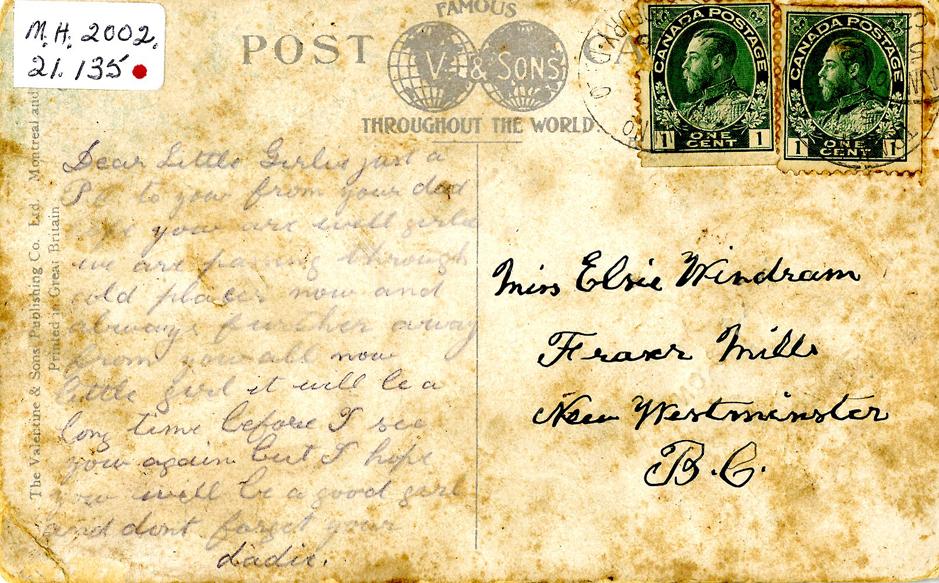 M.H. 2002.
21.135
POST CA
FAMOUS
V & SONS
THROUGHOUT THE WORLD.
CANADA POSTAGE
1 ONE CENT 1
CANADA POSTAGE
1 ONE CENT 1
The Valentine & Sons Publishing Co. Ltd. Montreal and
Printed in Great Britain
Dear Little Girlie just a
P.C. to you from your dad
hope your are well girlie
we are passing through
cold places now and
always further away
from you all now
little girl it will be a
long time before I see
you again but I hope
you will be a good girl
and dont forget your
dadie.
Miss Elsie Windram
Fraser Mills
New Westminster
B.C.